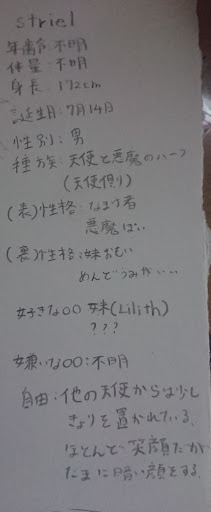 striel
年齢:不明
体重:不明
身長:172cm
誕生日:7月14日
性別:男
種族:天使と悪魔のハーフ
(天使側り)
(表)性格:なまけ者
悪魔ぽい
(裏)性格:妹おもい
めんどうみがいい
好きな○○ 妹(Lilith)
???
嫌いな○○:不明
自由:他の天使からは少し
きょりを置かれている。
ほとんど笑顔だが
たまに暗い顔をする。